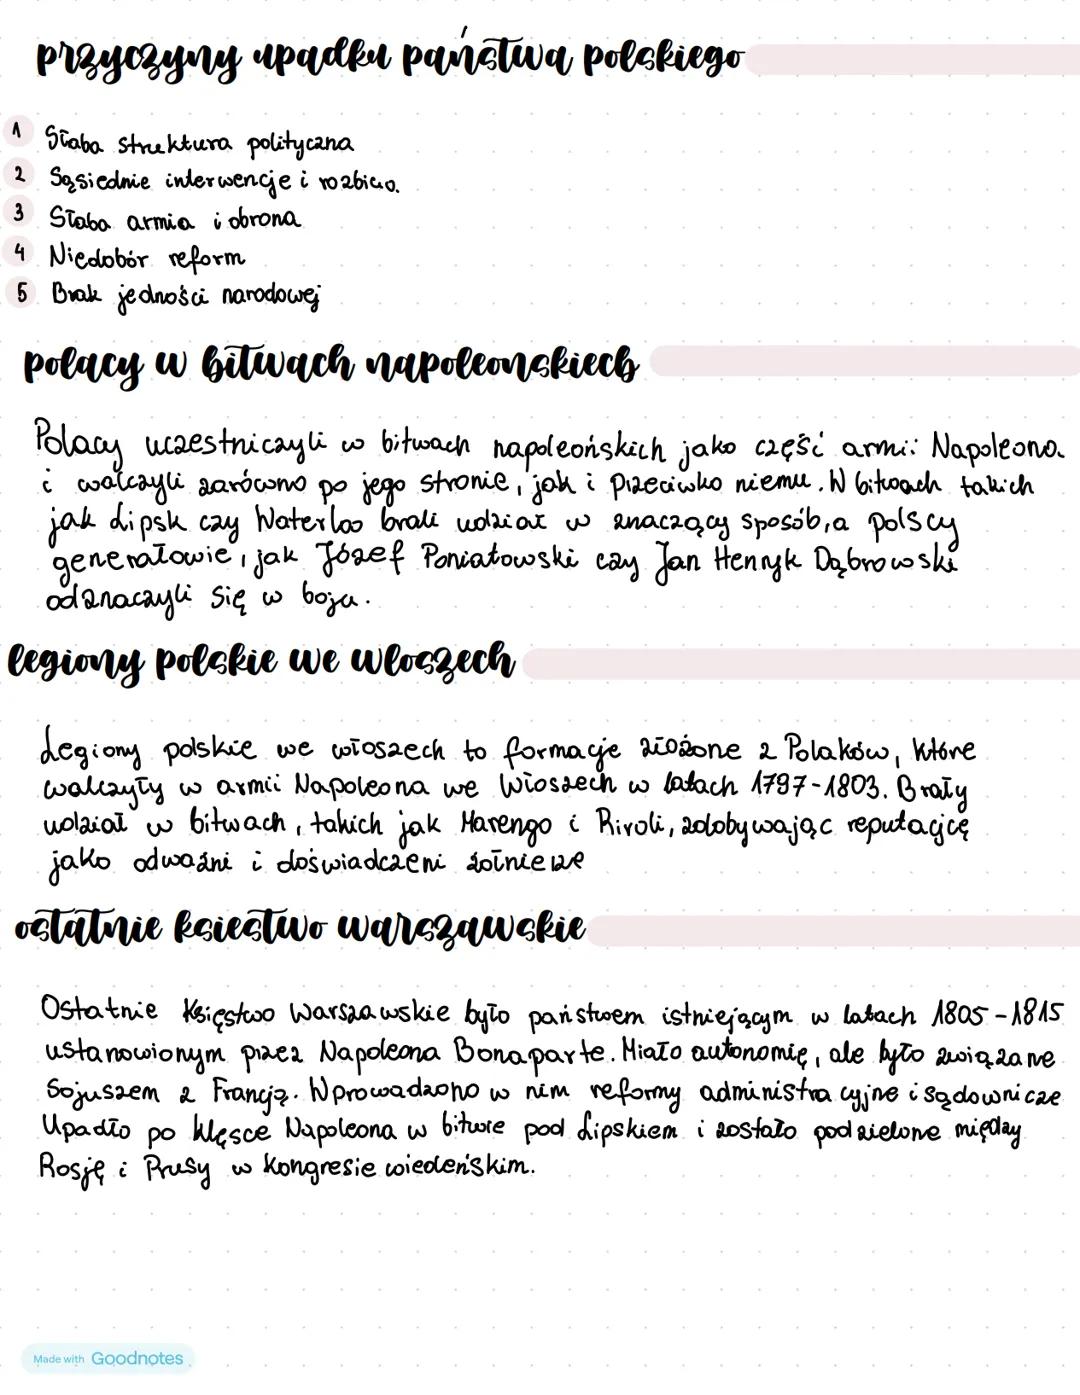 przyczyny upadku państwa polskiego
1 Słaba struktura polityczna
2 Sąsiednie interwencje i rozbicio.
3 Słaba armia i obrona
4 Niedobór reform
5 Brak jedności narodowej
polacy w bitwach napoleonskiech
Polacy uczestniczyli w bitwach napoleońskich jako część armii Napoleona.
i walczyli zarówno po jego stronie, jak i przeciwko niemu. W bitwach takich
jak Lipsk czy Waterloo brali udział w znaczący sposób, a polscy
generałowie, jak Józef Poniatowski czy Jan Henryk Dąbrowski
odznaczyli się w boju.
legiony polskie we wloszech
Legiony polskie we włoszech to formacje złożone z Polaków, które
walczyły w armii Napoleona we Włoszech w latach 1797-1803. Brały
udział w bitwach, takich jak Marengo i Rivoli, zdobywając reputację
jako odważni i doświadczeni żołnierze
ostatnie ksiestwo warszawskie
Ostatnie Księstwo Warszawskie było państwem istniejącym w latach 1805-1815
ustanowionym przez Napoleona Bonaparte. Miało autonomię, ale było związane
Sojuszem z Francją. Wprowadzono w nim reformy administracyjne i sądownicze
Upadło po klęsce Napoleona w bitwie pod Lipskiem i zostało podzielone między
Rosję i Prusy w kongresie wiedeńskim.
Made with Goodnotes